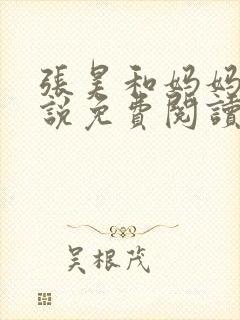 張昊和妈妈
說免費閱讀
吴根茂